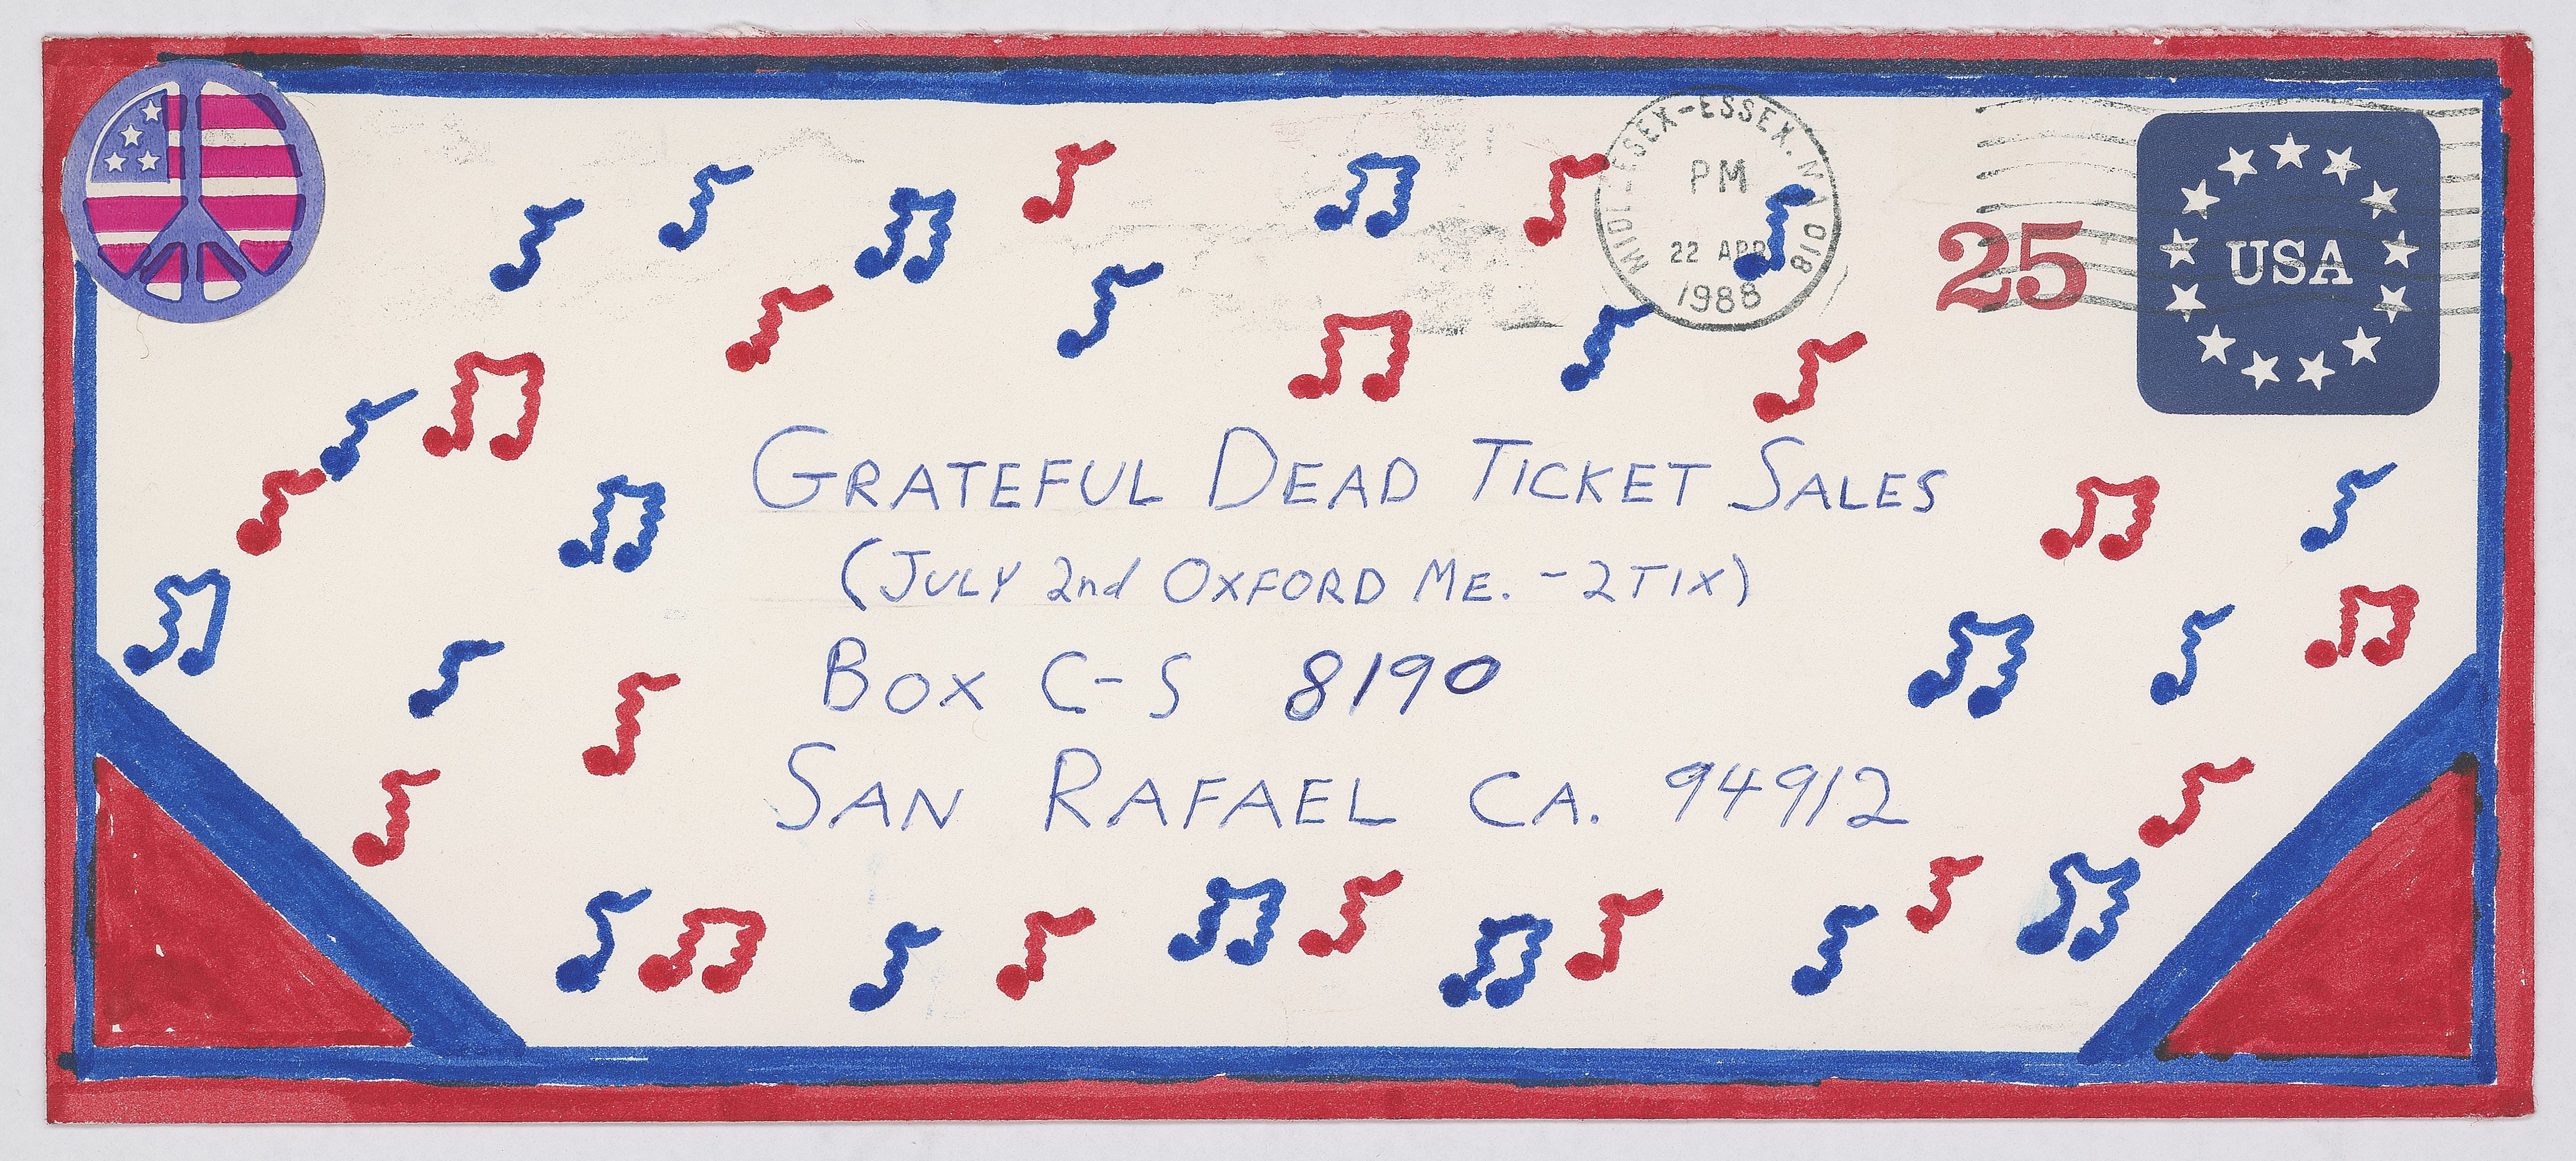 MIDL-ESSEX-ESSEX. MA 018
PM
22 APR
1988
25
USA
GRATEFUL DEAD TICKET SALES
(JULY 2nd OXFORD ME. - 2 TIX)
BOX C-S 8190
SAN RAFAEL CA. 94912